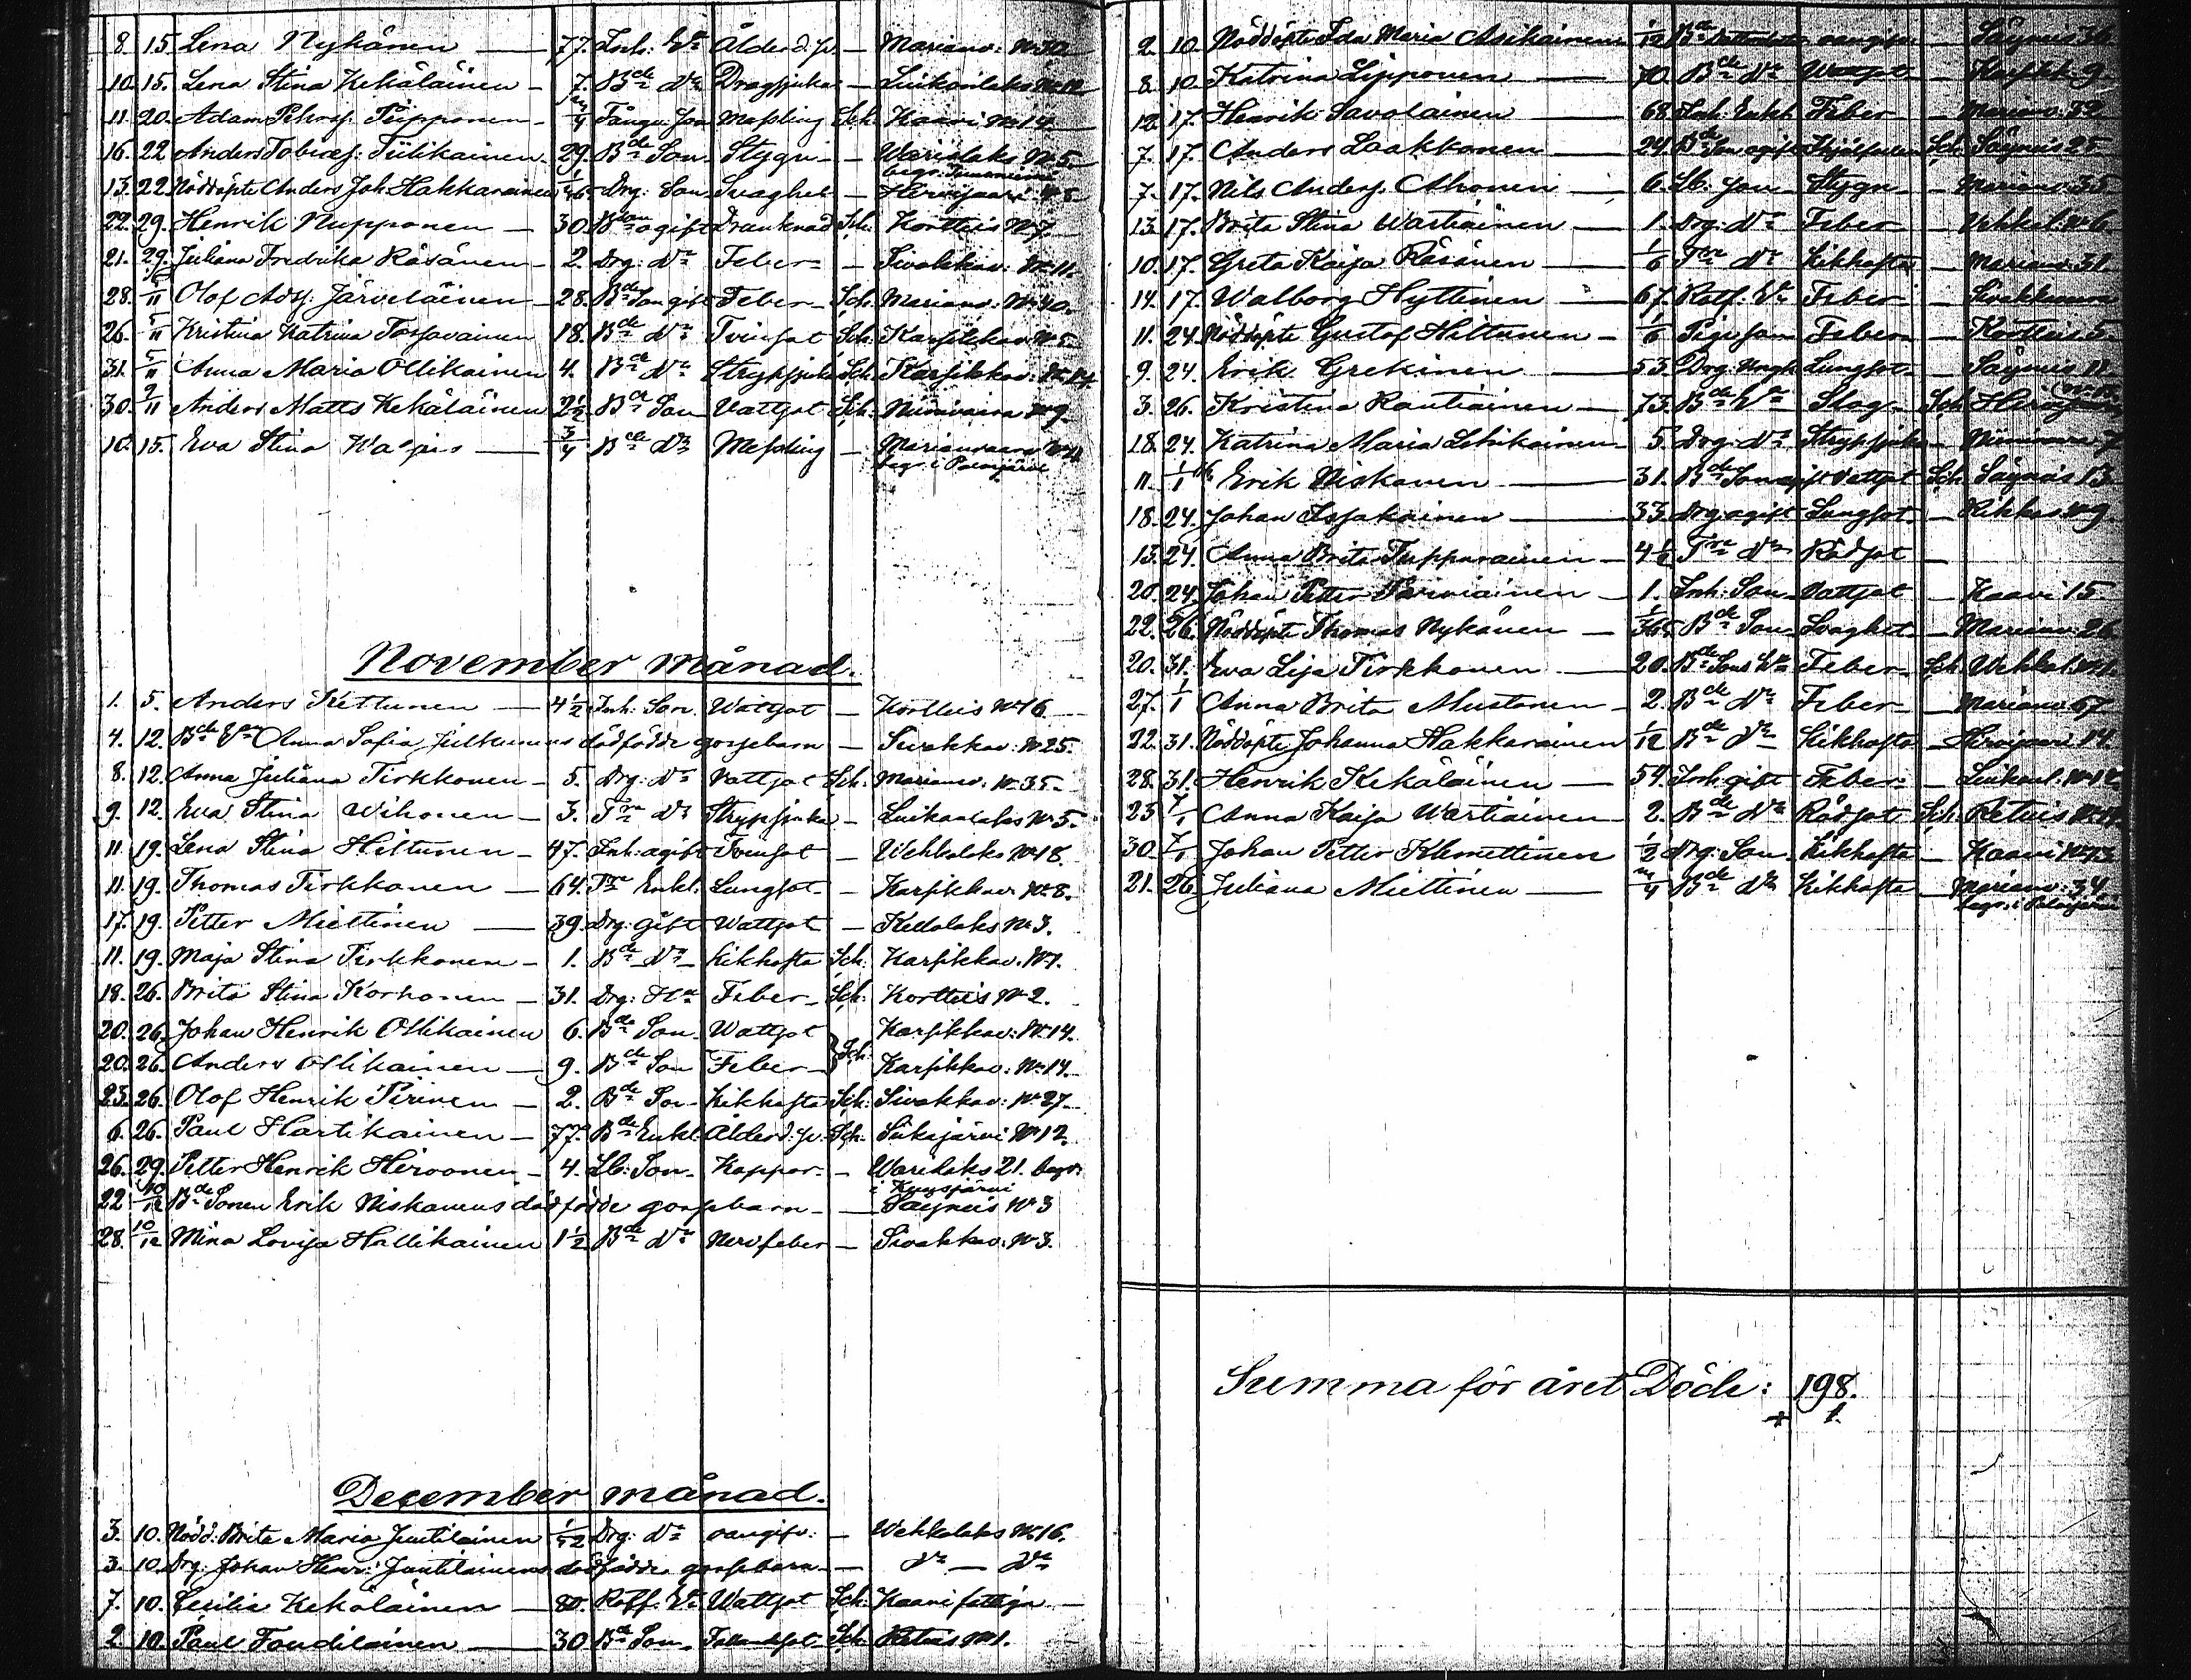 8. 15. Lena Nykänen — 77. Inh: Ea Ålderd. — Marianv: No
10. 15. Lena Stina Kekäläinen — 7. Bde Dr Dragsjuka — Luikonlaks No 12
11. 20. Adam Pehrss. Piipponen — Son Messling Sch. Kaavi No 14
16. 22. Anders Tobiass. Tiilikainen — 29. Bde Son Stygn — Warislaks No 5.
13. 22. Nöddöpte Anders Joh. Hakkarainen Drg: Son Svaghet — No 5
22. 29. Henrik Nupponen — 30. ogift Drunknad Sch. Kortteis No 7.
21. 29. Juliana Fredrika Räsänen — 2. Drg: Dr Feber — Sivakkav: No 11.
28. 5/11 Olof Järveläinen — 28. Bde Son gift Feber — Sch. Marianv: No 40.
26. 5/11 Kristina Katrina Tossavainen 18. Bde Dr Tvinsot Sch. Karsikkav No 5.
31. 5/11 Anna Maria Ollikainen 4. Bde Dr Strypsjuka Sch. Karsikkav: No 14
30. 9/11 Anders Matts Kekäläinen 2½ Bde Son Vattsot Sch. Niinivaara No 9.
10. 15. Eva Stina 3/4 Bde Dr Messling — Marianvaara No 4
begr. i Polvijärvi
November månad.
1. 5. Anders Kettunen — 4½ Inh: Son. Wattsot — Kortteis No 16
4. 12. Bde Anna Sofia Julkunens dödfödde gossebarn — Sivakkav: No 25.
8. 12. Anna Juliana Tirkkonen — 5. Drg: Dr Vattsot Sch. Marianv. No 35.
9. 12. Eva Stina Wihonen — 3. Tre Dr Strypsjuka — Luikonlaks No 5.
11. 19. Lena Stina Hiltunen — 47. Inh: ogift Tvinsot — Wehkalaks No 18.
11. 19. Thomas Tirkkonen — 64. Tre Enkl. Lungsot — Karsikkav: No 8.
17. 19. Petter Miettinen — 39. Drg: Gift Wattsot — Keltalaks No 3.
11. 19. Maja Stina Tirkkonen — 1. Bde Dr — Kikhosta Sch: Karsikkav. No 1.
18. 26. Brita Stina Korhonen — 31. Drg: Feber — Sch: Kortteis No 2.
20. 26. Johan Henrik Ollikainen 6. Bde Son Wattsot Karsikkav: No 14.
20. 26. Anders Ollikainen — 9. Bde Son Feber — Sch: Karsikkav: No 14.
23. 26. Olof Henrik Pirinen — 2. Bde Son Kikhosta Sch: Sivakkav: No 27.
6. 26. Paul Hartikainen — 77. Bde Enkl. Ålderd. Sch. Siikajärvi No 12.
26. 29. Petter Henrik Hirvonen — 4. Lb: Son Koppor — Warislaks 21. begr:
i Kuusjärvi
22. 10/12 Bde Sonen Erik Niskanens dödfödde gossebarn — Säyneis No 3
28. 10/12 Mina Lovisa Hallikainen 1½ Bde Dr Nervfeber — Sivakkav: No 3.
December månad.
3. 10. Nödd: Brita Maria Juutilainen Drg: Dr oangifv: — Wehkalaks No 16.
3. 10. Drg: Johan Henr: Juutilainens dödfödde gossebarn — Dr — Dr
7. 10. Cecilia Kekäläinen — 80. Rotf. Ea Wattsot Sch. Kaavi fattigu —
2. 10. Paul Toudilainen — 30. Bde Son Sch. Retuis No 1.
2. 10. Nöddöpte Ida Maria Asikainen 1/12 Bde oangifv. — Säyneis 36.
8. 10. Katrina Lipponen — 70. Bde Wattsot — Karsikk 9.
12. 17. Henrik Savolainen — 68. Inh: Enkl. Feber — Marianv: 32.
7. 17. Anders Laakkonen — 24. Bde Son ogift Sch. Säyneis 25
7. 17. Nils Anderss. Ahonen — 6. Lb: Son Stygn — Marianv: 35
13. 17. Brita Stina Wartiainen — 1. Drg: Dr Feber — Vehkal: No 6
10. 17. Greta Kaisa Räsänen — 1/6 Tre Dr Kikhosta — Marianv: 31.
14. 17. Walborg Hyttinen — 67. Rotf: Ea Feber — Sivakkavaara
11. 24. Nöddöpte Gustof Hiltunen — 1/6 Feber — Kortteis 5.
9. 24. Erik Grekinen — 53. Drg: Lungsot — Säyneis 11
3. 26. Kristina Rautiainen — 73. Bde Ea Slag — Sch.
18. 24. Katrina Maria Lehikoinen — 5. Drg: Dr Strypsjuka — Niinivaara 7
11. 1/1 Erik Niskanen — 31. Bde Son ogift Vattsot Sch. Säyneis 13.
18. 24. Johan Issakainen — 33. Drg ogift Lungsot — No 9
13. 24. Anna Brita Tuppurainen — Tre Dr Rödsot —
20. 24. Johan Petter Parviainen — 1. Inh: Son Vattsot — Kaavi 15.
22. 26. Nöddöpte Thomas Nykänen — 1/365 Bde Son Svaghet — Marianv: 26
20. 31. Eva Lisa Tirkkonen — 20. Bde Sons Feber — Sch. Vehkal: No 1.
27. 1/1 Anna Brita Mustonen — 2. Bde Dr Feber — Marianv: 67
22. 31. Nöddöpte Johanna Hakkarainen 1/12 Bde Dr Kikhosta — 14.
28. 31. Henrik Kekäläinen — 54. Inh: gift Feber — Luikonl: No 12
23. 7/1 Anna Kaisa Wartiainen 2. Bde Dr Rödsot Sch. Retuis
30. 7/1 Johan Petter Klemettinen ½ Drg: Son Kikhosta — Kaavi
21. 26. Juliana Miettinen — Bde Dr Kikhosta — Marianv: 34
begr: i Polvijärvi
Summa för året Döde: 198.
+ 1.